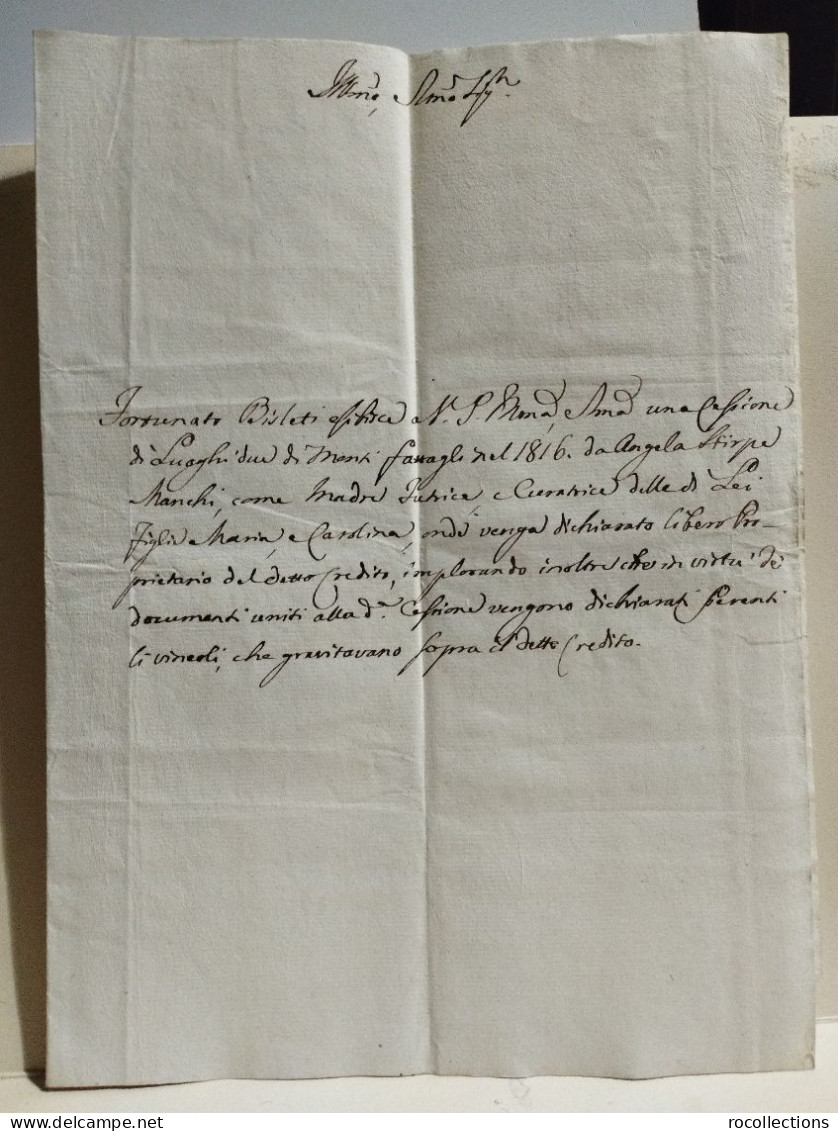 Fortunato Bisleti esibisce a V. S. Illma, e Rma una Cessione
di Luoghi due di Monti fattagli nel 1816. da Angela Stirpe
Manchi, come Madre Tutrice, e Curatrice delle di Lei
Figlie Maria, e Carolina, onde venga dichiarato libero Pro-
prietario del detto Credito, implorando inoltre che in virtù dei
documenti uniti alla d.a Cessione vengono dichiarati perenti
li vincoli, che gravitavano sopra il detto Credito.
rocollections